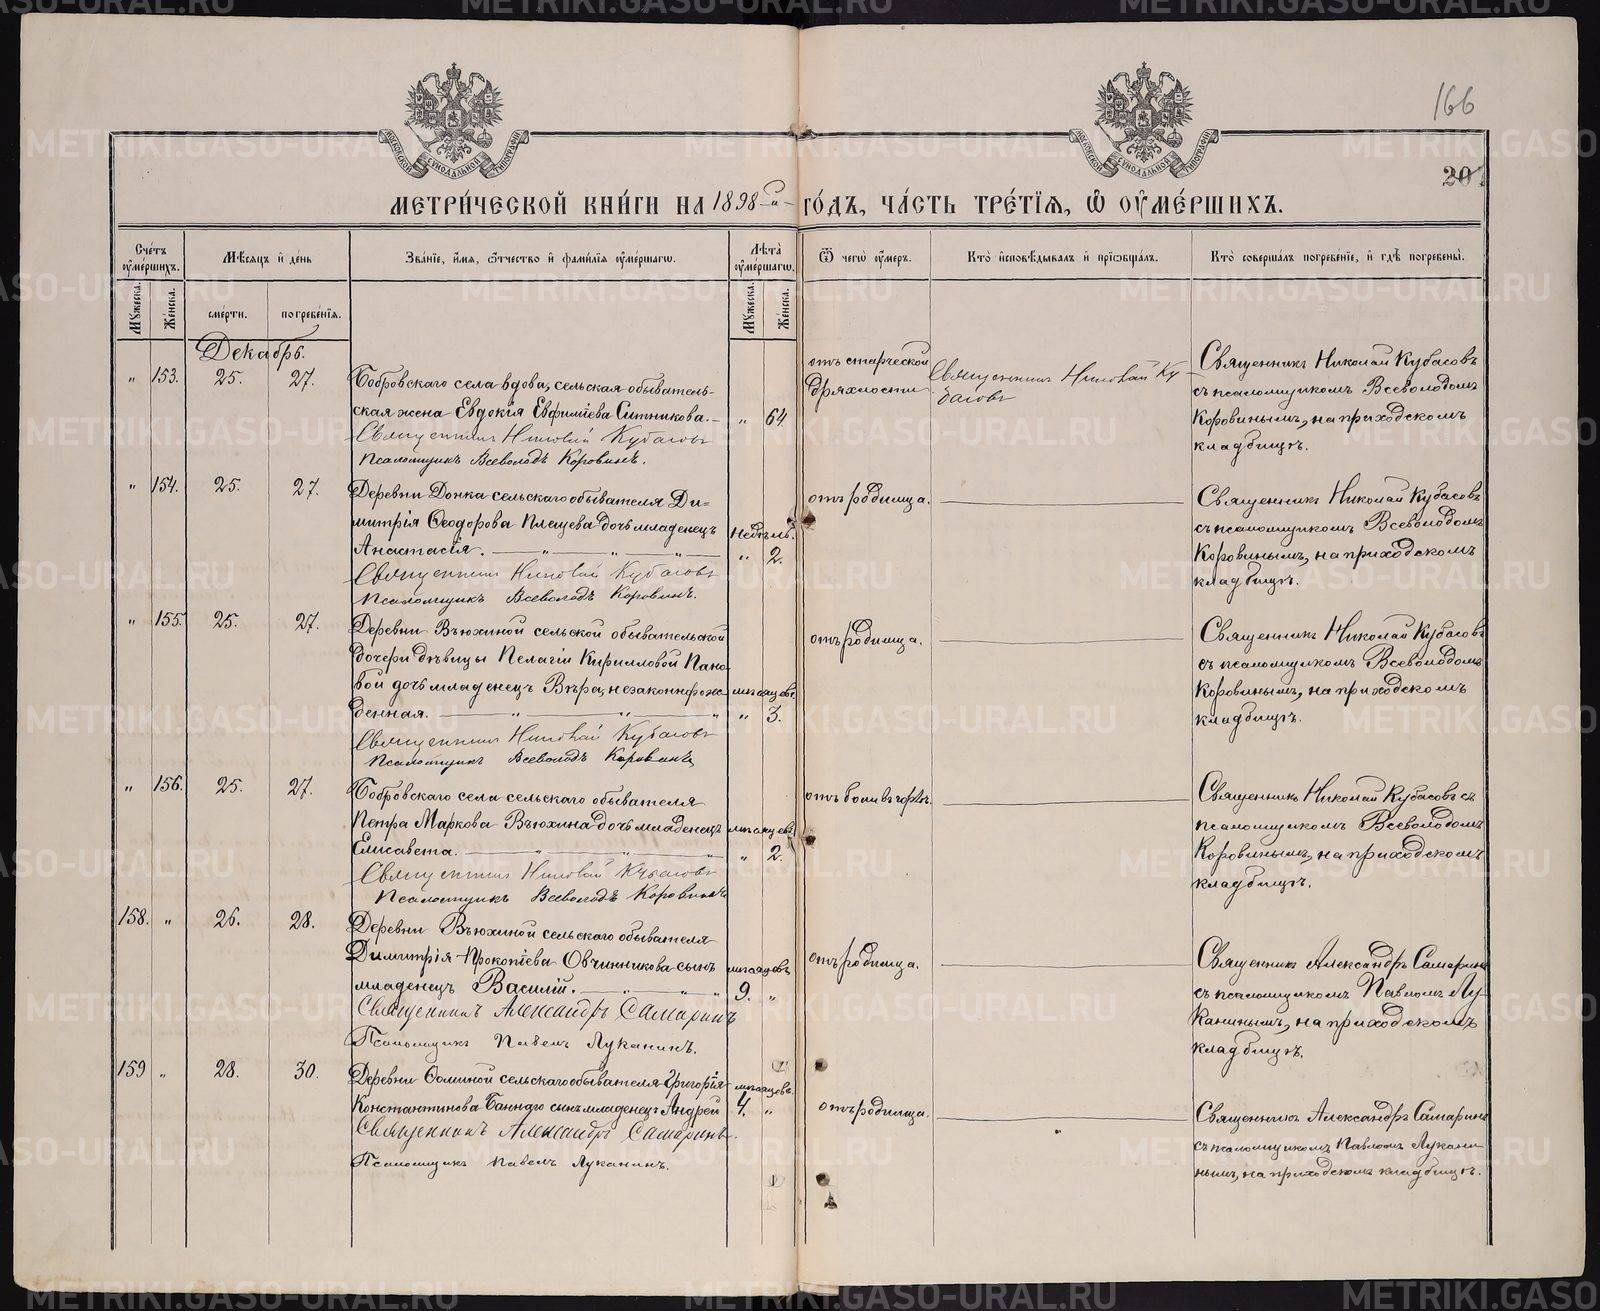 166
20
МОСКОВСКОЙ СУНОДАЛЬНОЙ ТИПОГРАФІИ
МОСКОВСКОЙ СУНОДАЛЬНОЙ ТИПОГРАФІИ
МЕТРИ́ЧЕСКОЙ КНИ́ГИ НА 1898-й ГО́ДЪ, ЧА́СТЬ ТРЕ́ТІѦ, Ѡ ОУМЕ́РШИХЪ.
Сче́тъ оуме́ршихъ.
Мѣ́сѧцъ и де́нь
Зва́нїе, и́мѧ, ѻ҆́тчество и фами́лїѧ оуме́ршагѡ.
Лѣ́та оуме́ршагѡ.
Ѿ чегѡ̀ оу́меръ.
Кто̀ исповѣ́дывалъ и прїѡбща́лъ.
Кто̀ соверша́лъ погребе́нїе, и гдѣ̀ погребены̀.
Му́жеска. Же́нска.
сме́рти. погребе́нїѧ.
Му́жеска. Же́нска.
Декабрь.
" 153. 25. 27.
Бобровскаго села вдова, сельская обыватель-
ская жена Евдокія Евфиміева Ситникова. —
" 64.
Священникъ Николай Кубасовъ
Псаломщикъ Всеволодъ Коровинъ.
отъ старческой
дряхлости
Священникъ Николай Ку-
басовъ
Священникъ Николай Кубасовъ
съ псаломщикомъ Всеволодомъ
Коровинымъ, на приходскомъ
кладбищѣ.
" 154. 25. 27.
Деревни Донка сельскаго обывателя Ди-
митрія Ѳеодорова Плещева дочь младенецъ
Анастасія. — " — " — " —
недѣль.
" 2.
Священникъ Николай Кубасовъ
Псаломщикъ Всеволодъ Коровинъ.
отъ родимца.
Священникъ Николай Кубасовъ
съ псаломщикомъ Всеволодомъ
Коровинымъ, на приходскомъ
кладбищѣ.
" 155. 25. 27.
Деревни Вьюхиной сельской обывательской
дочери дѣвицы Пелагіи Кирилловой Пано-
вой дочь младенецъ Вѣра, незаконнорож-
денная. — " — " — "
мѣсяцевъ
" 3.
Священникъ Николай Кубасовъ
Псаломщикъ Всеволодъ Коровинъ
отъ родимца.
Священникъ Николай Кубасовъ
съ псаломщикомъ Всеволодомъ
Коровинымъ, на приходскомъ
кладбищѣ.
" 156. 25. 27.
Бобровскаго села сельскаго обывателя
Петра Маркова Вьюхина дочь младенецъ
Елисавета. — " — " — "
мѣсяцевъ
" 2.
Священникъ Николай Кубасовъ
Псаломщикъ Всеволодъ Коровинъ
отъ боли въ горлѣ.
Священникъ Николай Кубасовъ съ
псаломщикомъ Всеволодомъ
Коровинымъ, на приходскомъ
кладбищѣ.
158. " 26. 28.
Деревни Вьюхиной сельскаго обывателя
Димитрія Прокопіева Овчинникова сынъ
младенецъ Василій. — " — " — "
мѣсяцевъ
9. "
Священникъ Александръ Самаринъ
Псаломщикъ Павелъ Луканинъ.
отъ родимца.
Священникъ Александръ Самаринъ
съ псаломщикомъ Павломъ Лу-
канинымъ, на приходскомъ
кладбищѣ.
159 " 28. 30.
Деревни Ѳоминой сельскаго обывателя Григорія
Константинова Баннаго сынъ младенецъ Андрей
мѣсяцевъ
4. "
Священникъ Александръ Самаринъ.
Псаломщикъ Павелъ Луканинъ.
отъ родимца.
Священникъ Александръ Самаринъ
съ псаломщикомъ Павломъ Лукани-
нымъ, на приходскомъ кладбищѣ.
METRIKI.GASO-URAL.RU